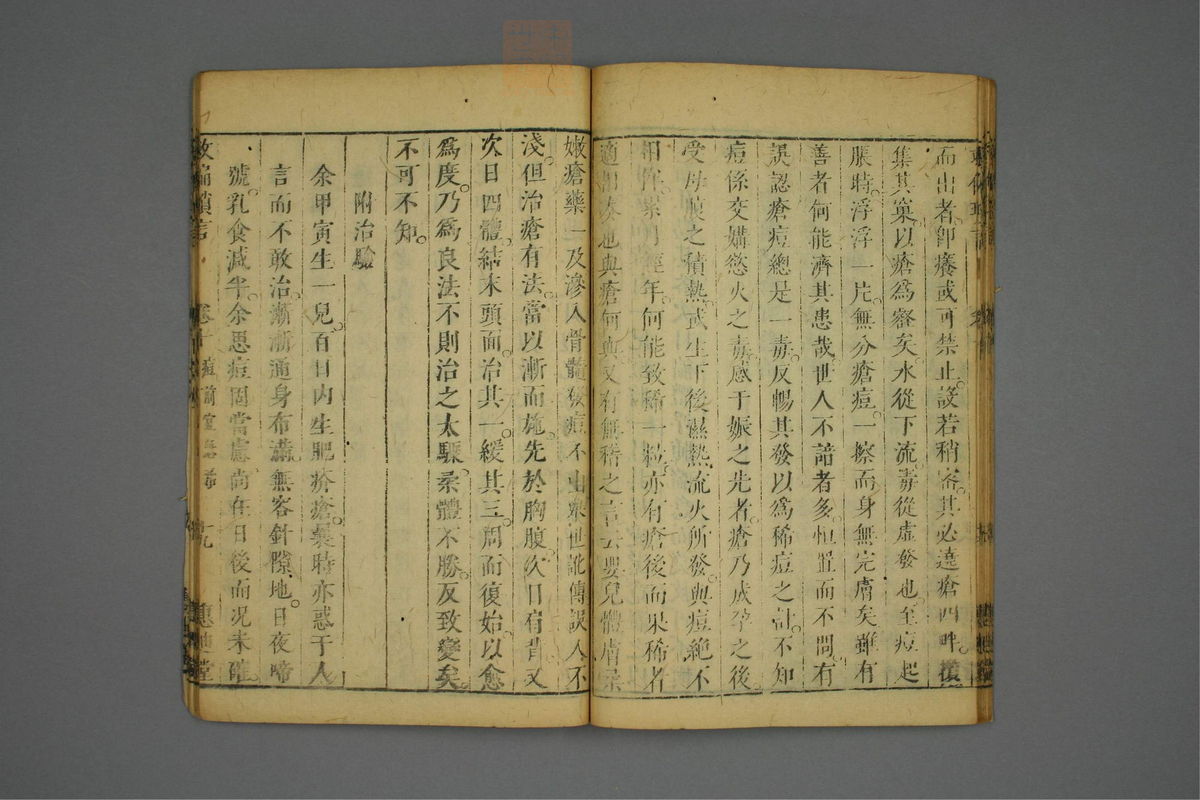 而出者即癢或可禁止設若稍密其必遶瘡四畔攢
集其窠以瘡為窩矣水從下流毒從虛發也至痘起
脹時浮浮一片無分瘡痘一擦而身無完膚矣雖有
善者何能濟其患哉世人不諳者多恒置而不問有
誤認瘡痘總是一毒反暢其發以為稀痘之計不知
痘係交媾慾火之毒感于娠之先者瘡乃成孕之後
受母腹之積熱或生下後濕熱流火所發與痘絶不
相伴累月經年何能致稀一粒亦有瘡後而果稀者
適相湊也與瘡何與又有無稽之言云嬰兒體膚柔
嫩瘡藥一及滲入骨髓發痘不出衆世訛傳誤人不
淺但治瘡有法當以漸而施先於胸腹次日肩背又
次日四體結末頭面治其一緩其三周而復始以愈
為度乃為良法不則治之太驟柔體不勝反致變矣
不可不知
附治驗
余甲寅生一兒百日内生肥疥瘡曩時亦惑于人
言而不敢治漸漸通身布滿無容針隙地日夜啼
號乳食減半余思痘固當慮尚在日後而况未確